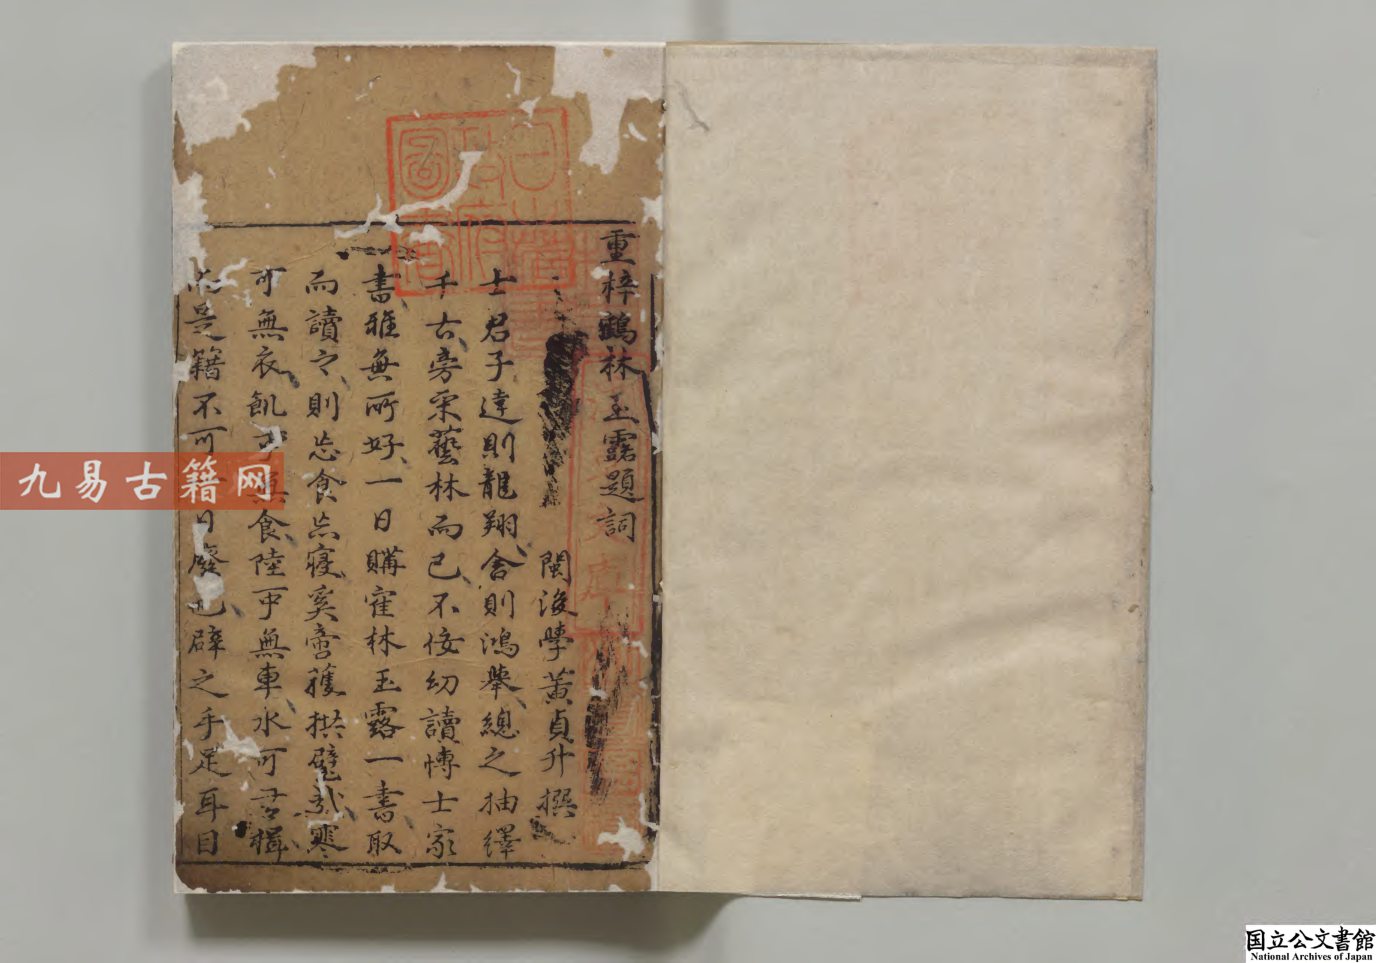 重梓鶴林玉露題詞
閩後學黃貞升撰
士君子達則龍翔舍則鴻舉總之抽繹
千古旁采藝林而已不佞幼讀博士家
書雅無所好一日購寉林玉露一書取
而讀之則忘食忘寢奚啻獲拱璧哉寒
可無衣飢可無食陸可無車水可無楫
而是籍不可 日廢也辟之手足耳目
九易古籍网
国立公文書館
National Archives of Japan